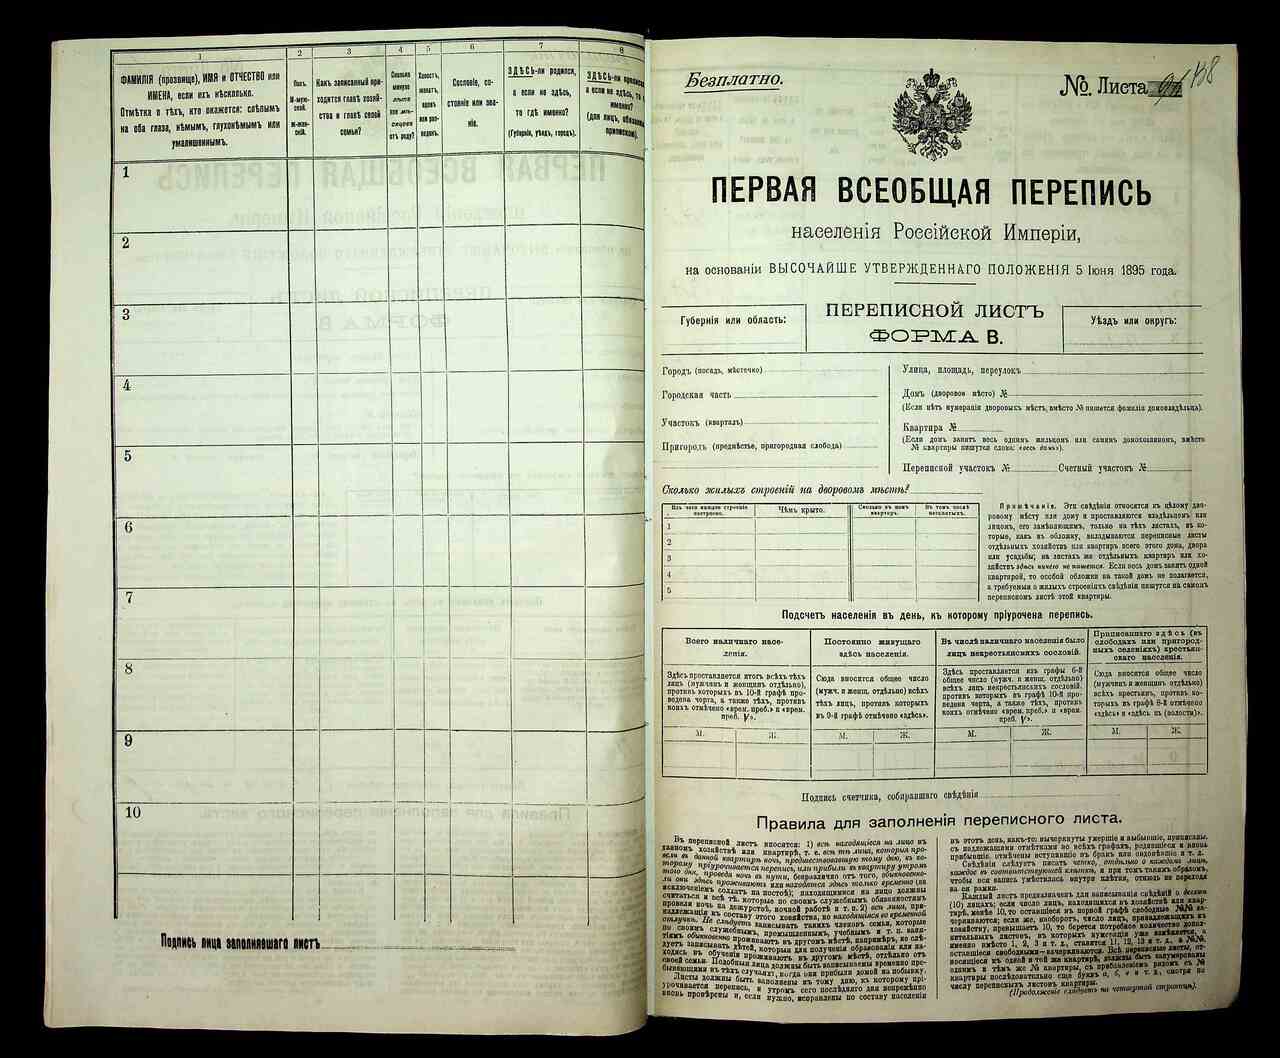 1
2
3
4
5
6
7
8
ФАМИЛІЯ (прозвище), ИМЯ и ОТЧЕСТВО или
ИМЕНА, если ихъ нѣсколько.
Отмѣтка о тѣхъ, кто окажется: слѣпымъ
на оба глаза, нѣмымъ, глухонѣмымъ или
умалишеннымъ.
Полъ.
М-муж-
ской.
Ж-жен-
скій.
Какъ записанный при-
ходится главѣ хозяй-
ства и главѣ своей
семьи?
Сколько
минуло
лѣтъ
или мѣ-
сяцевъ
отъ роду?
Холостъ,
женатъ,
вдовъ
или раз-
веденъ.
Сословіе, со-
стояніе или зва-
ніе.
ЗДѢСЬ-ли родился,
а если не здѣсь,
то гдѣ именно?
(Губернія, уѣздъ, городъ).
ЗДѢСЬ-ли
а если не здѣсь, то
именно?
(для лицъ,
1
2
3
4
5
6
7
8
9
10
Подпись лица заполнявшаго листъ
Безплатно.
№ Листа
ПЕРВАЯ ВСЕОБЩАЯ ПЕРЕПИСЬ
населенія Россійской Имперіи,
на основаніи ВЫСОЧАЙШЕ УТВЕРЖДЕННАГО ПОЛОЖЕНІЯ 5 Іюня 1895 года.
Губернія или область:
ПЕРЕПИСНОЙ ЛИСТЪ
ФОРМА В.
Уѣздъ или округъ:
Городъ (посадъ, мѣстечко)
Городская часть
Участокъ (кварталъ)
Пригородъ (предмѣстье, пригородная слобода)
Улица, площадь, переулокъ
Домъ (дворовое мѣсто) №
(Если нѣтъ нумераціи дворовыхъ мѣстъ, вмѣсто № пишется фамилія домовладѣльца).
Квартира №
(Если домъ занятъ весь однимъ жильцомъ или самимъ домохозяиномъ, вмѣсто
№ квартиры пишутся слова: «весь домъ»).
Переписной участокъ № Счетный участокъ №
Сколько жилыхъ строеній на дворовомъ мѣстѣ?
Изъ чего каждое строеніе
построено.
Чѣмъ крыто.
Сколько въ немъ
квартиръ.
Въ томъ числѣ
незанятыхъ.
1
2
3
4
5
Примѣчанія. Эти свѣдѣнія относятся къ цѣлому дво-
ровому мѣсту или дому и проставляются владѣльцемъ или
лицомъ, его замѣняющимъ, только на тѣхъ листахъ, въ ко-
торые, какъ въ обложку, вкладываются переписные листы
отдѣльныхъ хозяйствъ или квартиръ всего этого дома, двора
или усадьбы; на листахъ же отдѣльныхъ квартиръ или хо-
зяйствъ здѣсь ничего не пишется. Если весь домъ занятъ одной
квартирой, то особой обложки на такой домъ не полагается,
а требуемыя о жилыхъ строеніяхъ свѣдѣнія пишутся на самомъ
переписномъ листѣ этой квартиры.
Подсчетъ населенія въ день, къ которому пріурочена перепись.
Всего наличнаго насе-
ленія.
Постоянно живущаго
здѣсь населенія.
Въ числѣ наличнаго населенія было
лицъ некрестьянскихъ сословій.
Приписаннаго здѣсь (въ
слободахъ или пригород-
ныхъ селеніяхъ) крестьян-
скаго населенія.
Здѣсь проставляется итогъ всѣхъ тѣхъ
лицъ (мужчинъ и женщинъ отдѣльно),
противъ которыхъ въ 10-й графѣ про-
ведена черта, а также тѣхъ, противъ
коихъ отмѣчено «врем. преб.» и «врем.
преб. V».
Сюда вносится общее число
(мужч. и женщ. отдѣльно) всѣхъ
тѣхъ лицъ, противъ которыхъ
въ 9-й графѣ отмѣчено «здѣсь».
Здѣсь проставляется изъ графы 6-й
общее число (мужч. и женщ. отдѣльно)
всѣхъ лицъ некрестьянскихъ сословій,
противъ которыхъ въ графѣ 10-й про-
ведена черта, а также тѣхъ, противъ
коихъ отмѣчено «врем. преб.» и «врем.
преб. V».
Сюда вносится общее число
(мужчинъ и женщинъ отдѣльно)
всѣхъ крестьянъ, противъ ко-
торыхъ въ графѣ 8-й отмѣчено
«здѣсь» и «здѣсь въ (волости)».
М. Ж. М. Ж. М. Ж. М. Ж.
Подпись счетчика, собиравшаго свѣдѣнія
Правила для заполненія переписного листа.
Въ переписной листъ вносятся: 1) всѣ находящіеся на лицо въ
данномъ хозяйствѣ или квартирѣ, т. е. всѣ тѣ лица, которыя про-
вели въ данной квартирѣ ночь, предшествовавшую тому дню, къ ко-
торому пріурочивается перепись, или прибыли въ квартиру утромъ
того дня, проведя ночь въ пути, безразлично отъ того, обыкновен-
но ли они здѣсь проживаютъ или находятся здѣсь только временно (за
исключеніемъ солдатъ на постоѣ); находящимися на лицо должны
считаться и всѣ тѣ, которые по своимъ служебнымъ обязанностямъ
провели ночь на дежурствѣ, ночной работѣ и т. п. 2) всѣ лица, при-
надлежащія къ составу этого хозяйства, но находящіяся во временной
отлучкѣ. Не слѣдуетъ записывать такихъ членовъ семьи, которые
по своимъ служебнымъ, промышленнымъ, учебнымъ и т. п. заня-
тіямъ обыкновенно проживаютъ въ другомъ мѣстѣ, напримѣръ, не слѣ-
дуетъ записывать дѣтей, которыя для полученія образованія или на-
ходясь въ обученіи проживаютъ въ другомъ мѣстѣ, отдѣльно отъ
своей семьи. Подобныя лица должны быть записываемы временно пре-
бывающими въ тѣхъ случаяхъ, когда они прибыли домой на побывку.
Листы должны быть заполнены къ тому дню, къ которому прі-
урочивается перепись, и утромъ сего послѣдняго дня непремѣнно
вновь провѣрены и, если нужно, исправлены по составу населенія
въ этотъ день, какъ-то: вычеркнуты умершіе и выбывшіе, приписаны,
съ надлежащими отмѣтками во всѣхъ графахъ, родившіеся и вновь
прибывшіе, отмѣчены вступившіе въ бракъ или овдовѣвшіе и т. д.
Свѣдѣнія слѣдуетъ писать четко, отдѣльно о каждомъ лицѣ,
каждое въ соотвѣтствующей клѣткѣ, и при томъ такимъ образомъ,
чтобы вся запись умѣстилась внутри клѣтки, отнюдь не переходя
за ея рамки.
Каждый листъ предназначенъ для записыванія свѣдѣній о десяти
(10) лицахъ; если число лицъ, находящихся въ хозяйствѣ или квар-
тирѣ, менѣе 10, то оставшіеся въ первой графѣ свободные №№ за-
черкиваются; если же, наоборотъ, число лицъ, принадлежащихъ къ
хозяйству, превышаетъ 10, то берется потребное количество допол-
нительныхъ листовъ, въ которыхъ нумерація уже измѣняется, а
именно вмѣсто 1, 2, 3 и т. д., ставятся 11, 12, 13 и т. д., а №№,
оставшіеся свободными—зачеркиваются. Всѣ переписные листы, от-
носящіеся къ одной и той же квартирѣ, должны быть занумерованы
однимъ и тѣмъ же № квартиры, съ прибавленіемъ рядомъ съ №
квартиры послѣдовательно еще буквъ а, б, в и т. д., смотря по
числу переписныхъ листовъ квартиры.
(Продолженіе слѣдуетъ на четвертой страницѣ).